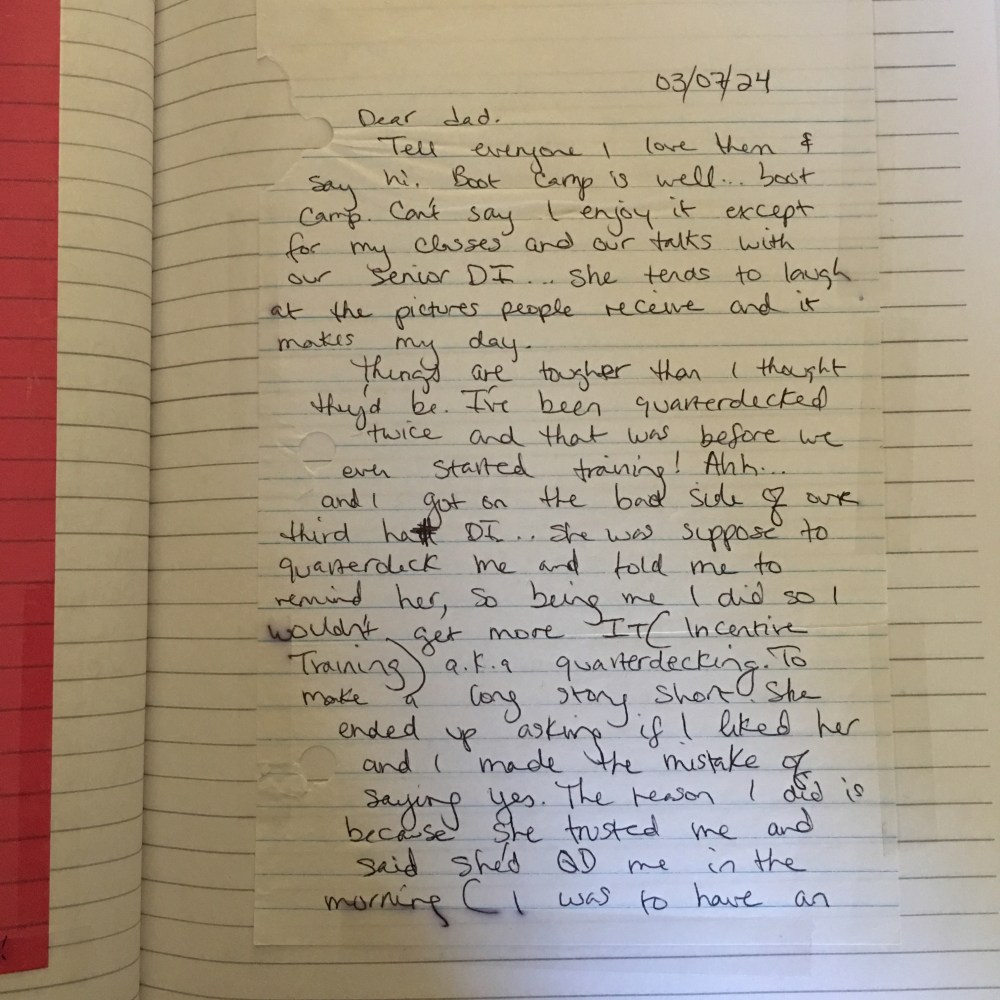 03/07/24
Dear dad.
Tell everyone I love them &
say hi. Boot Camp is well... boot
camp. Can't say I enjoy it except
for my classes and our talks with
our Senior DI... she tends to laugh
at the pictures people receive and it
makes my day.
Things are tougher than I thought
they'd be. I've been quarterdecked
twice and that was before we
even started training! Ahh...
and I got on the bad side of our
third hat DI.. she was suppose to
quarterdeck me and told me to
remind her, so being me I did so I
wouldn't get more IT( Incentive
Training) a.k.a quarterdecking. To
make a long story short she
ended up asking if I liked her
and I made the mistake of
saying yes. The reason I did is
because she trusted me and
said she'd QD me in the
morning ( I was to have an